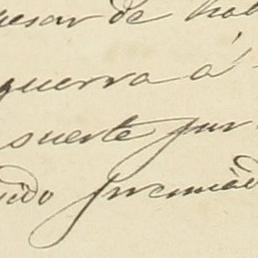 pesar de hab
guerra á
suerte por
sido premiad